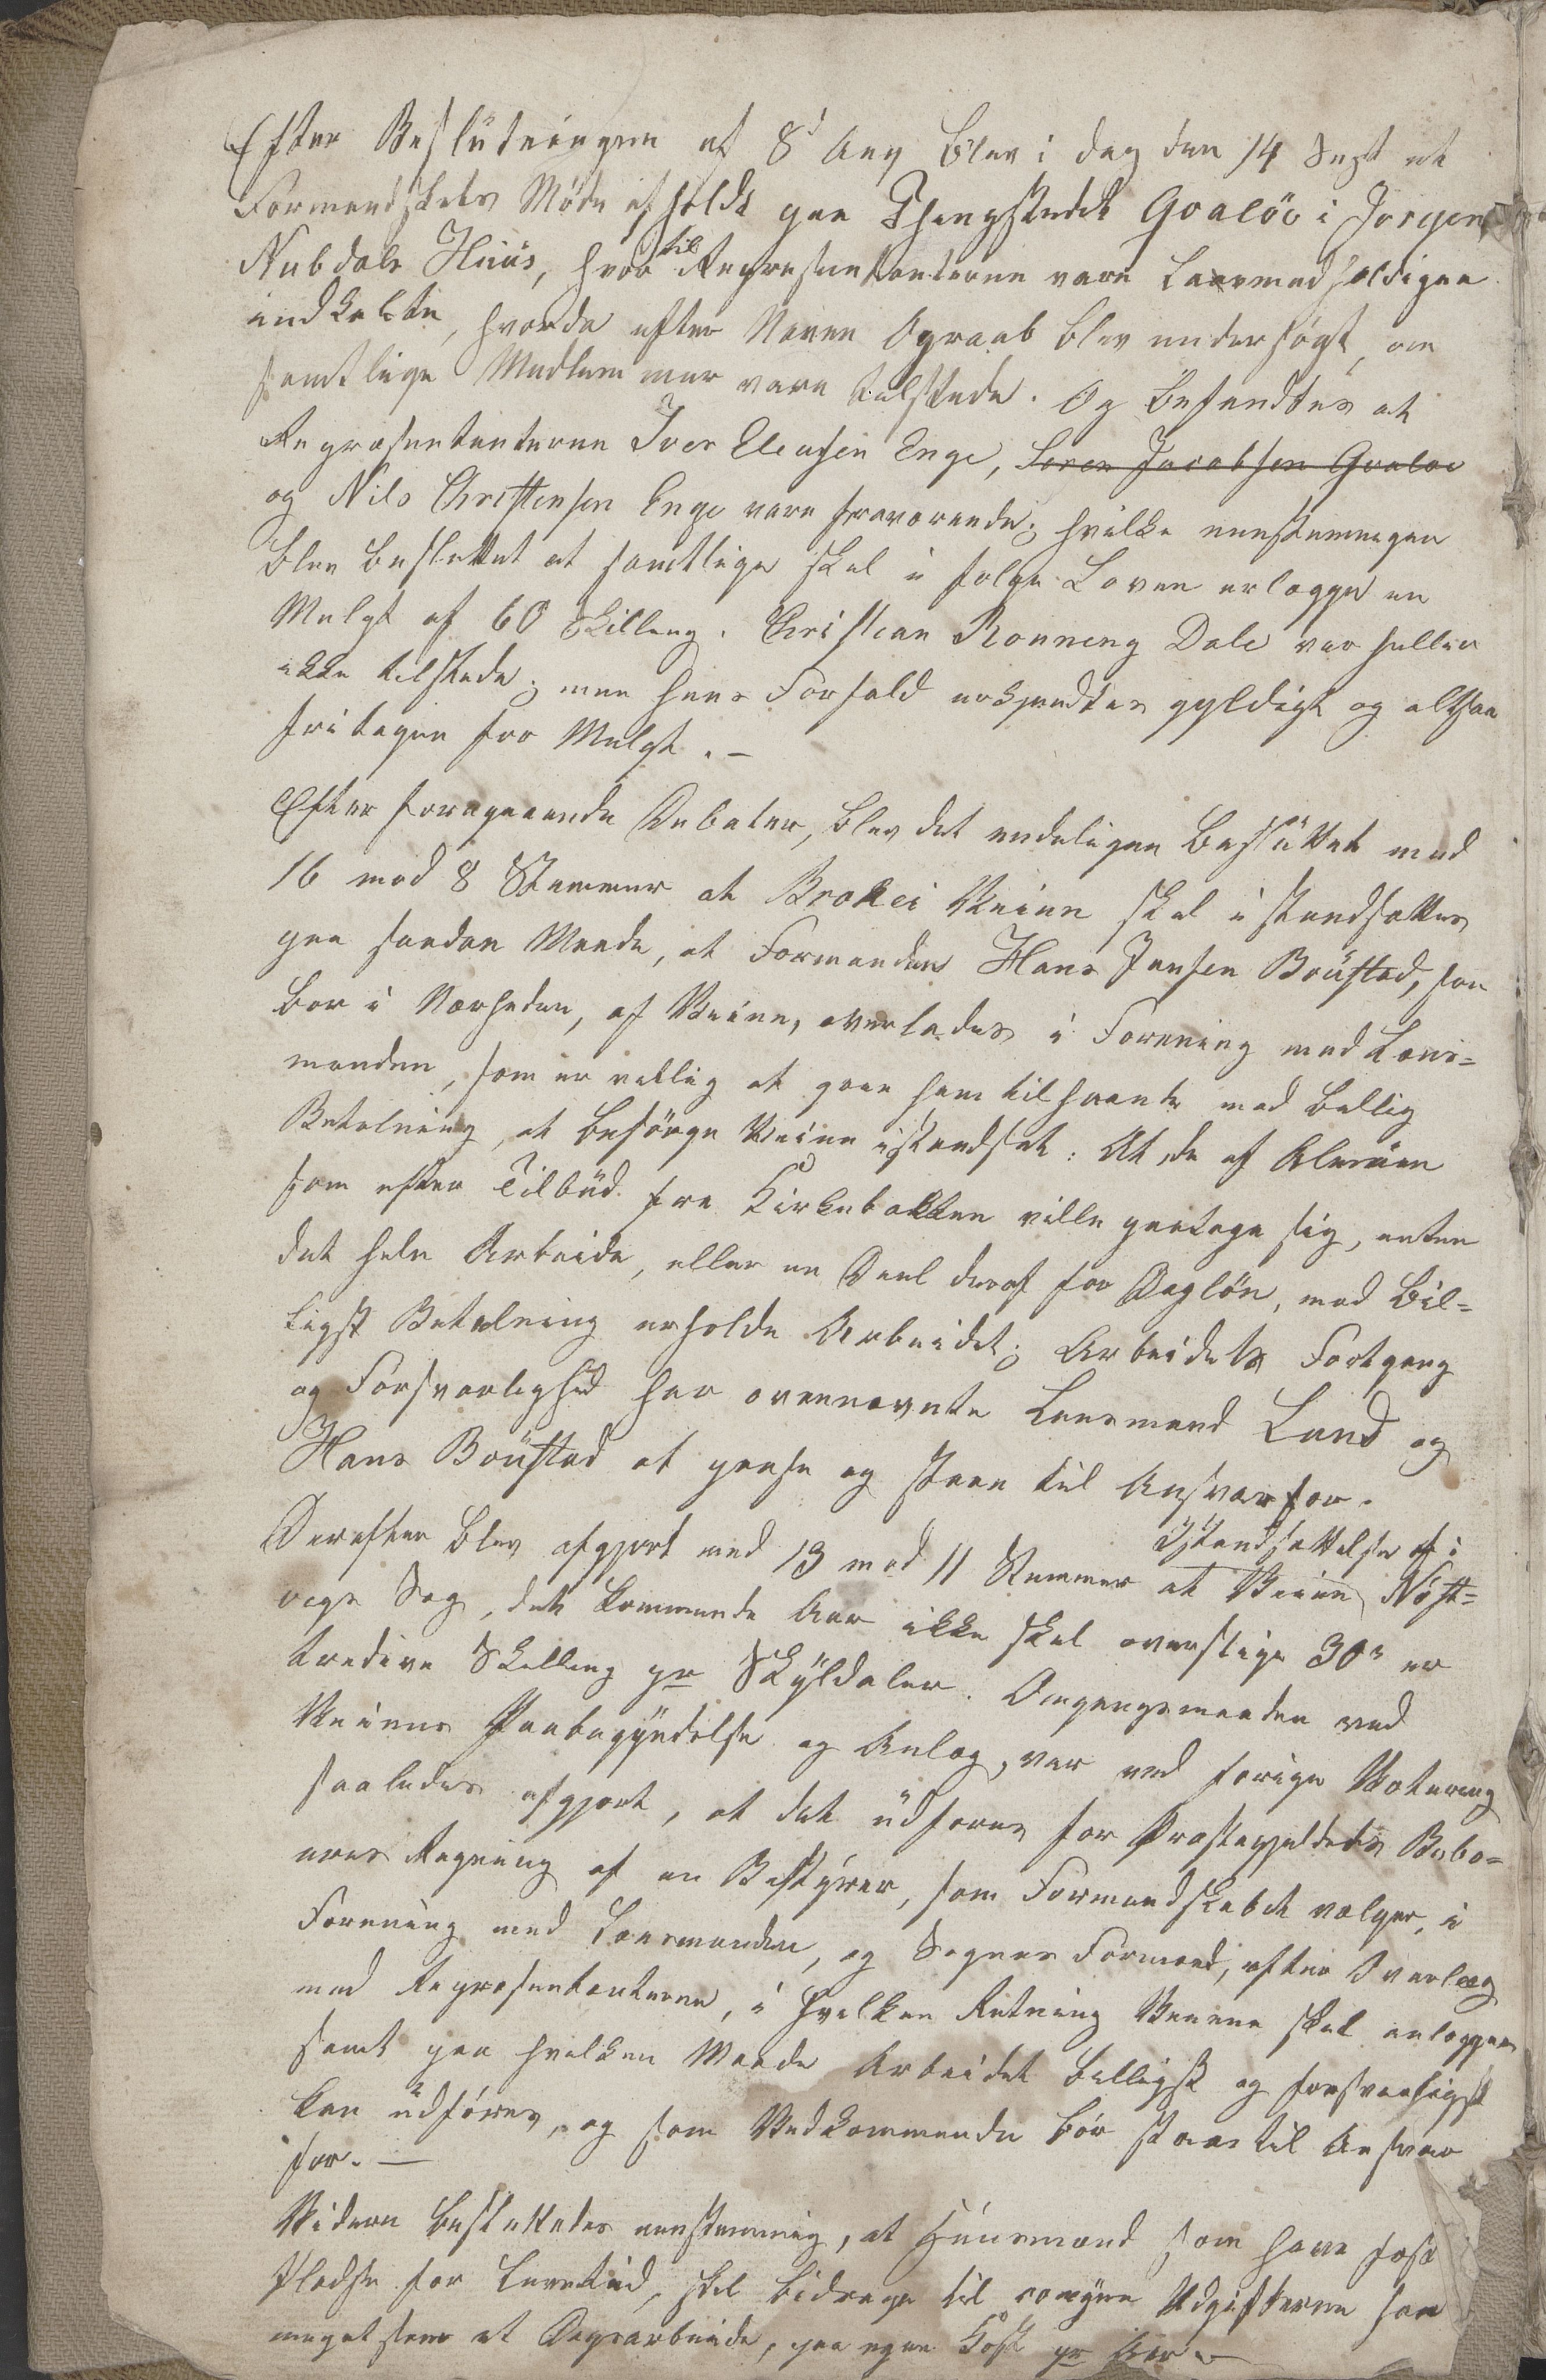 Efter Beslutningen af 8de Aug blev i dag den 14 Sept et
Formandskabs Möde afholdt paa Thingstedet Goalöv i Jorgen
Nubdals Huus, hvortil Repræsentanterne vare Lovmedholdigen
indkaldte, hvorda efter Navne Opraab blev undersögt, om
samtlige Medlemmer vare tilstede. Og befandtes at
Repræsentanterne Iver Eleusen Enge, Soren Jacobsen Goalov
og Nils Christensen Enge vare fraværende; hvilke eenstemmigen
blev besluttet at samtlige skal i folge Loven erlægge en
Mulgt af 60 Skilling. Christian Ronneng Dale var heller
ikke tilstede; men hans Forfald erkjendtes gyldigt og altsaa
fritagen for Mulgt. –
Efter foregaaende Debatter, blev det endeligen besluttet med
16 mod 8 Stemmer at Brokei Veien skal i standsættes
paa saadan Maade, at Formanden Hans Jensen Boüstad, som
bor i Nærheden, af Veien, overlades i Forening med Lens=
manden, som er villig at gaae ham tilhaande mod billig
Betalning, at besörge Veien istandsat: At de af Almuen
som efter Tilbud fra Kirkebakken ville paatage sig, enten
det hele Arbeide, eller en Deel deraf for Daglön, mod Bil=
ligst Betalning erholde Arbeidet; Arbeidets Fortgang
og Forsvarlighed har ovennævnte Lensmand Lund og
Hans Boüstad at paase og staae til Ansvar for.
Derefter blev afgjort med 13 mod 11 Stemmer at Istandsættelse af Veien i Nöst=
vegs Sog, dette kommende Aar ikke skal overstige 30s er
tredive Skilling pr Skyldaler. Omgangsmaaden ved
Veiens Paabegyndelse og Anlæg, var ved forige Votering
saaledes afgjort, at det udfores for Prastegjeldets Bebo=
eres Regning af en Bestyrer, som Formandskabet vælger, i
Forening med Lensmanden, og Sognes Formand, efter Overlæg
med Repræsentanterne, i hvilken Retning Veiene skal anlægges
samt paa hvilken Maade Arbeidet billigst og forsvarligst
kan udföres, og som Vedkommende bör staae til Ansvar
for. —
Videre besluttedes eenstemmig, at Huusmænd som have fast
Pladse for Levetid, skal bidrage til Udgifterne saa
meget som et Dagsarbeide, paa egen Kost pr Aar –